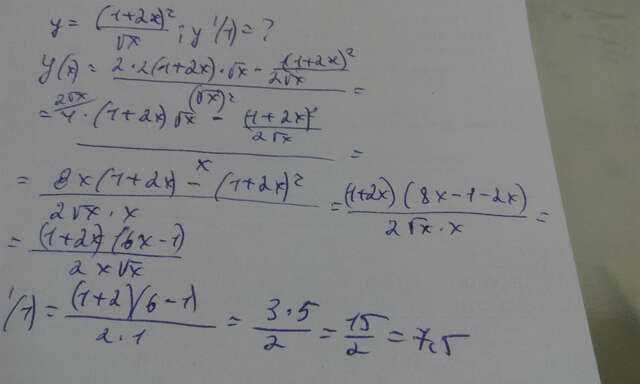 y = (1+2x)²/√x ; y'(1) = ?
y'(x) = (2·2(1+2x)·√x − (1+2x)²/2√x)/(√x)² =
= (2√x/ 4·(1+2x)√x − (1+2x)²/2√x)/x =
= (8x(1+2x) − (1+2x)²)/(2√x·x) = (1+2x)(8x−1−2x)/(2√x·x) =
= (1+2x)(6x−1)/(2x√x)
'(1) = (1+2)(6−1)/(2·1) = 3·5/2 = 15/2 = 7,5